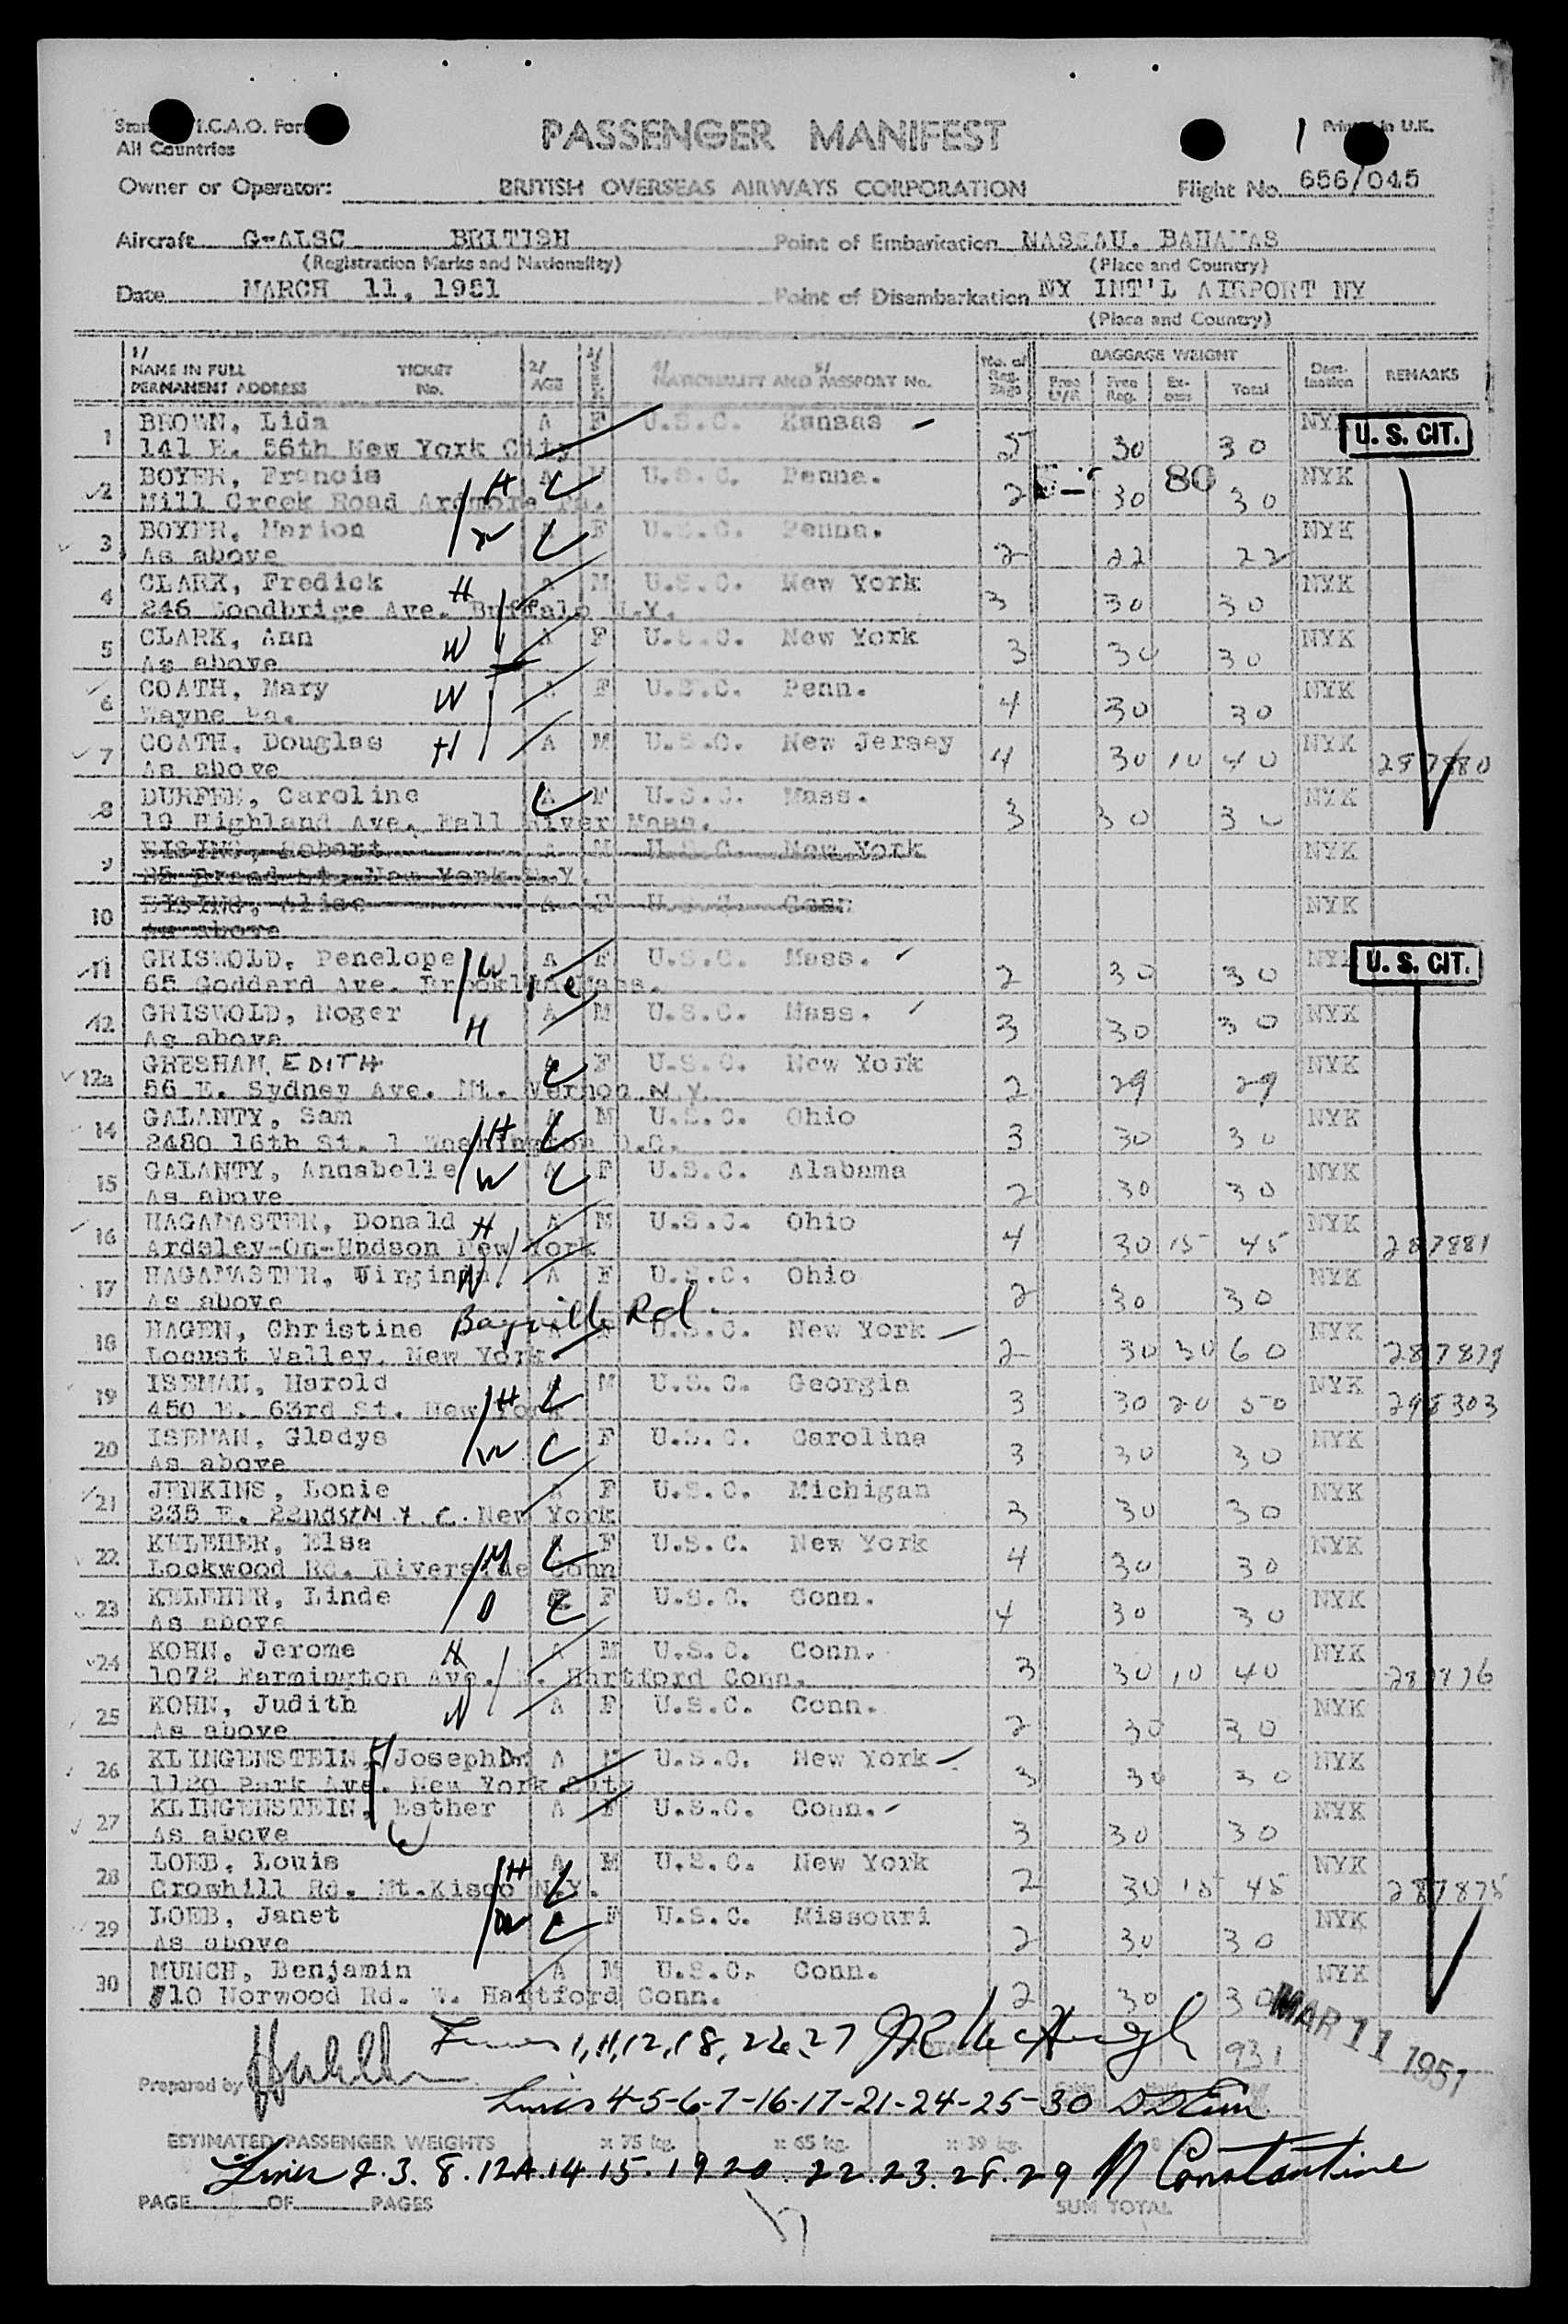 I.C.A.O. For
All Countries
PASSENGER MANIFEST
1
in U.K.
Owner or Operator: BRITISH OVERSEAS AIRWAYS CORPORATION Flight No. 656/045
Aircraft G-ALSC BRITISH Point of Embarkation NASSAU. BAHAMAS
(Registration Marks and Nationality) (Place and Country)
Date MARCH 11, 1951 Point of Disembarkation NY INT'L AIRPORT NY
(Place and Country)
1/ NAME IN FULL PERMANENT ADDRESS TICKET No. 2/ AGE 3/ 4/ NATIONALITY AND 5/ PASSPORT No. No. of Reg. Bags BAGGAGE WEIGHT Free Free Reg. Ex-cess Total Dest-ination REMARKS
1 BROWN, Lida A F U.S.C. Kansas 5 30 30 NYK U. S. CIT.
141 E. 56th New York City
2 BOYER, Francis H A C M U.S.C. Penna. 2 30 80 30 NYK
Mill Creek Road Ardmore Pa.
3 BOYER, Marion W A C F U.S.C. Penna. 2 22 22 NYK
As above
4 CLARK, Fredick H A M U.S.C. New York 3 30 30 NYK
246 Woodbrige Ave. Buffalo N.Y.
5 CLARK, Ann W A F U.S.C. New York 3 30 30 NYK
As above
6 COATH, Mary W A F U.S.C. Penn. 4 30 30 NYK
Wayne Pa.
7 COATH, Douglas H A M U.S.C. New Jersey 4 30 10 40 NYK 287880
As above
8 DURFEE, Caroline A C F U.S.C. Mass. 3 30 30 NYK
19 Highland Ave. Fall River Mass.
9 EISING, Robert A M U.S.C. New York NYK
Broad St. New York N.Y.
10 EISING, Alice A F U.S.C. Conn NYK
As above
11 GRISWOLD, Penelope W A F U.S.C. Mass. 2 30 30 NYK U. S. CIT.
65 Goddard Ave. Brookline Mass.
12 GRISWOLD, Roger H A M U.S.C. Mass. 3 30 30 NYK
As above
12a GRESHAM, EDITH A C F U.S.C. New York 2 29 29 NYK
56 E. Sydney Ave. Mt. Vernon N.Y.
14 GALANTY, Sam H A C M U.S.C. Ohio 3 30 30 NYK
2480 16th St. 1 Washington D.C.
15 GALANTY, Annabelle W A C F U.S.C. Alabama 2 30 30 NYK
As above
16 HAGAMASTER, Donald H A M U.S.C. Ohio 4 30 15 45 NYK 287881
Ardsley-On-Hudson New York
17 HAGAMASTER, Virginia W A F U.S.C. Ohio 2 30 30 NYK
As above
18 HAGEN, Christine Bayville Rd. A F U.S.C. New York 2 30 30 60 NYK 287879
Locust Valley, New York
19 ISEMAN, Harold H A C M U.S.C. Georgia 3 30 20 50 NYK 298303
450 E. 63rd St. New York
20 ISEMAN, Gladys W A C F U.S.C. Carolina 3 30 30 NYK
As above
21 JENKINS, Lonie A F U.S.C. Michigan 3 30 30 NYK
235 E. 22nd St N.Y.C. New York
22 KELEHER, Elsa M A C F U.S.C. New York 4 30 30 NYK
Lockwood Rd. Riverside Conn
23 KELEHER, Linde D C F U.S.C. Conn. 4 30 30 NYK
As above
24 KOHN, Jerome H A M U.S.C. Conn. 3 30 10 40 NYK 287876
1072 Farmington Ave. W. Hartford Conn.
25 KOHN, Judith W A F U.S.C. Conn. 2 30 30 NYK
As above
26 KLINGENSTEIN, H Joseph Dr. A M U.S.C. New York 3 30 30 NYK
1120 Park Ave. New York City
27 KLINGENSTEIN, Esther A F U.S.C. Conn. 3 30 30 NYK
As above W
28 LOEB, Louis H A C M U.S.C. New York 2 30 15 45 NYK 287875
Crowhill Rd. Mt.Kisco N.Y.
29 LOEB, Janet W A C F U.S.C. Missouri 2 30 30 NYK
As above
30 MUNCH, Benjamin A M U.S.C. Conn. 2 30 30 NYK
710 Norwood Rd. W. Hartford Conn.
MAR 11 1951
Lines 1, 11, 12, 18, 26, 27 931
Prepared by
Lines 4-5-6-7-16-17-21-24-25-30
ESTIMATED PASSENGER WEIGHTS x 75 kg. x 65 kg. x 39 kg.
Lines 2.3.8.12A.14.15.19 20.22.23.28.29 N Constantine
PAGE OF PAGES SUM TOTAL